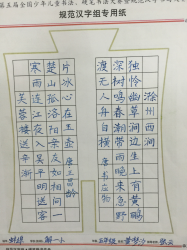 规范汉字组专用纸
芙蓉楼送辛渐
寒雨连江夜入吴平明送客
楚山孤洛阳亲友如相问一
片冰心在玉壶唐王昌龄
滁州西涧
独怜幽草涧边生上有黄鹂
深树鸣春潮带雨晚来急野
渡无人舟自横唐韦应物
五年级